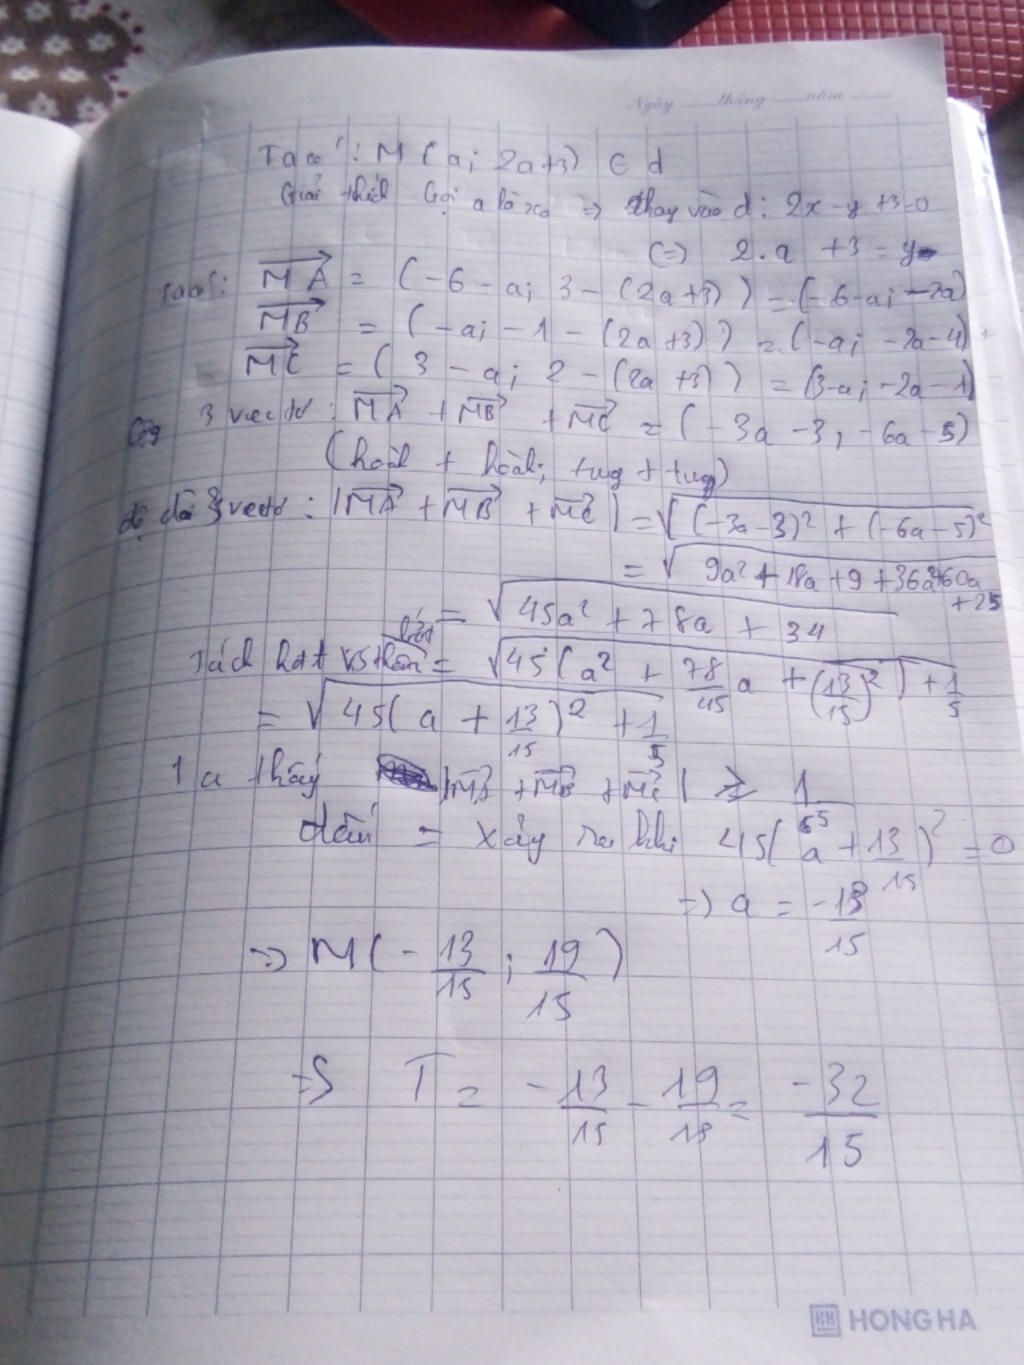 Ngày ......tháng ......năm ........
Ta có : M ( a; 2a+3) ∈ d
Giải thích Gọi a là x₀ => thay vào d : 2x - y +3=0
(=) 2.a +3 = y
Ta có : MA = (-6-a; 3-(2a+3)) = (-6-a; -2a)
MB = (-a; -1-(2a+3)) = (-a; -2a-4)
MC = (3-a; 2-(2a+3)) = (3-a; -2a-1)
Cộng 3 vectơ : MA + MB + MC = (-3a-3; -6a-5)
(hoành + hoành; tung + tung)
độ dài 3 vectơ : |MA + MB + MC| = √(-3a-3)² + (-6a-5)²
= √9a² + 18a + 9 + 36a² + 60a + 25
= √45a² + 78a + 34
Tách hđt = √45(a² + 78/45 a + (13/15)²) + 1/5
= √45(a + 13/15)² + 1/5
Ta thấy |MA + MB + MC| ≥ 1/
dấu = xảy ra khi 45(a + 13/15)² = 0
=> a = -13/15
=> M(-13/15 ; 19/15)
=> T = -13/15 - 19/15 = -32/15
HONG HA